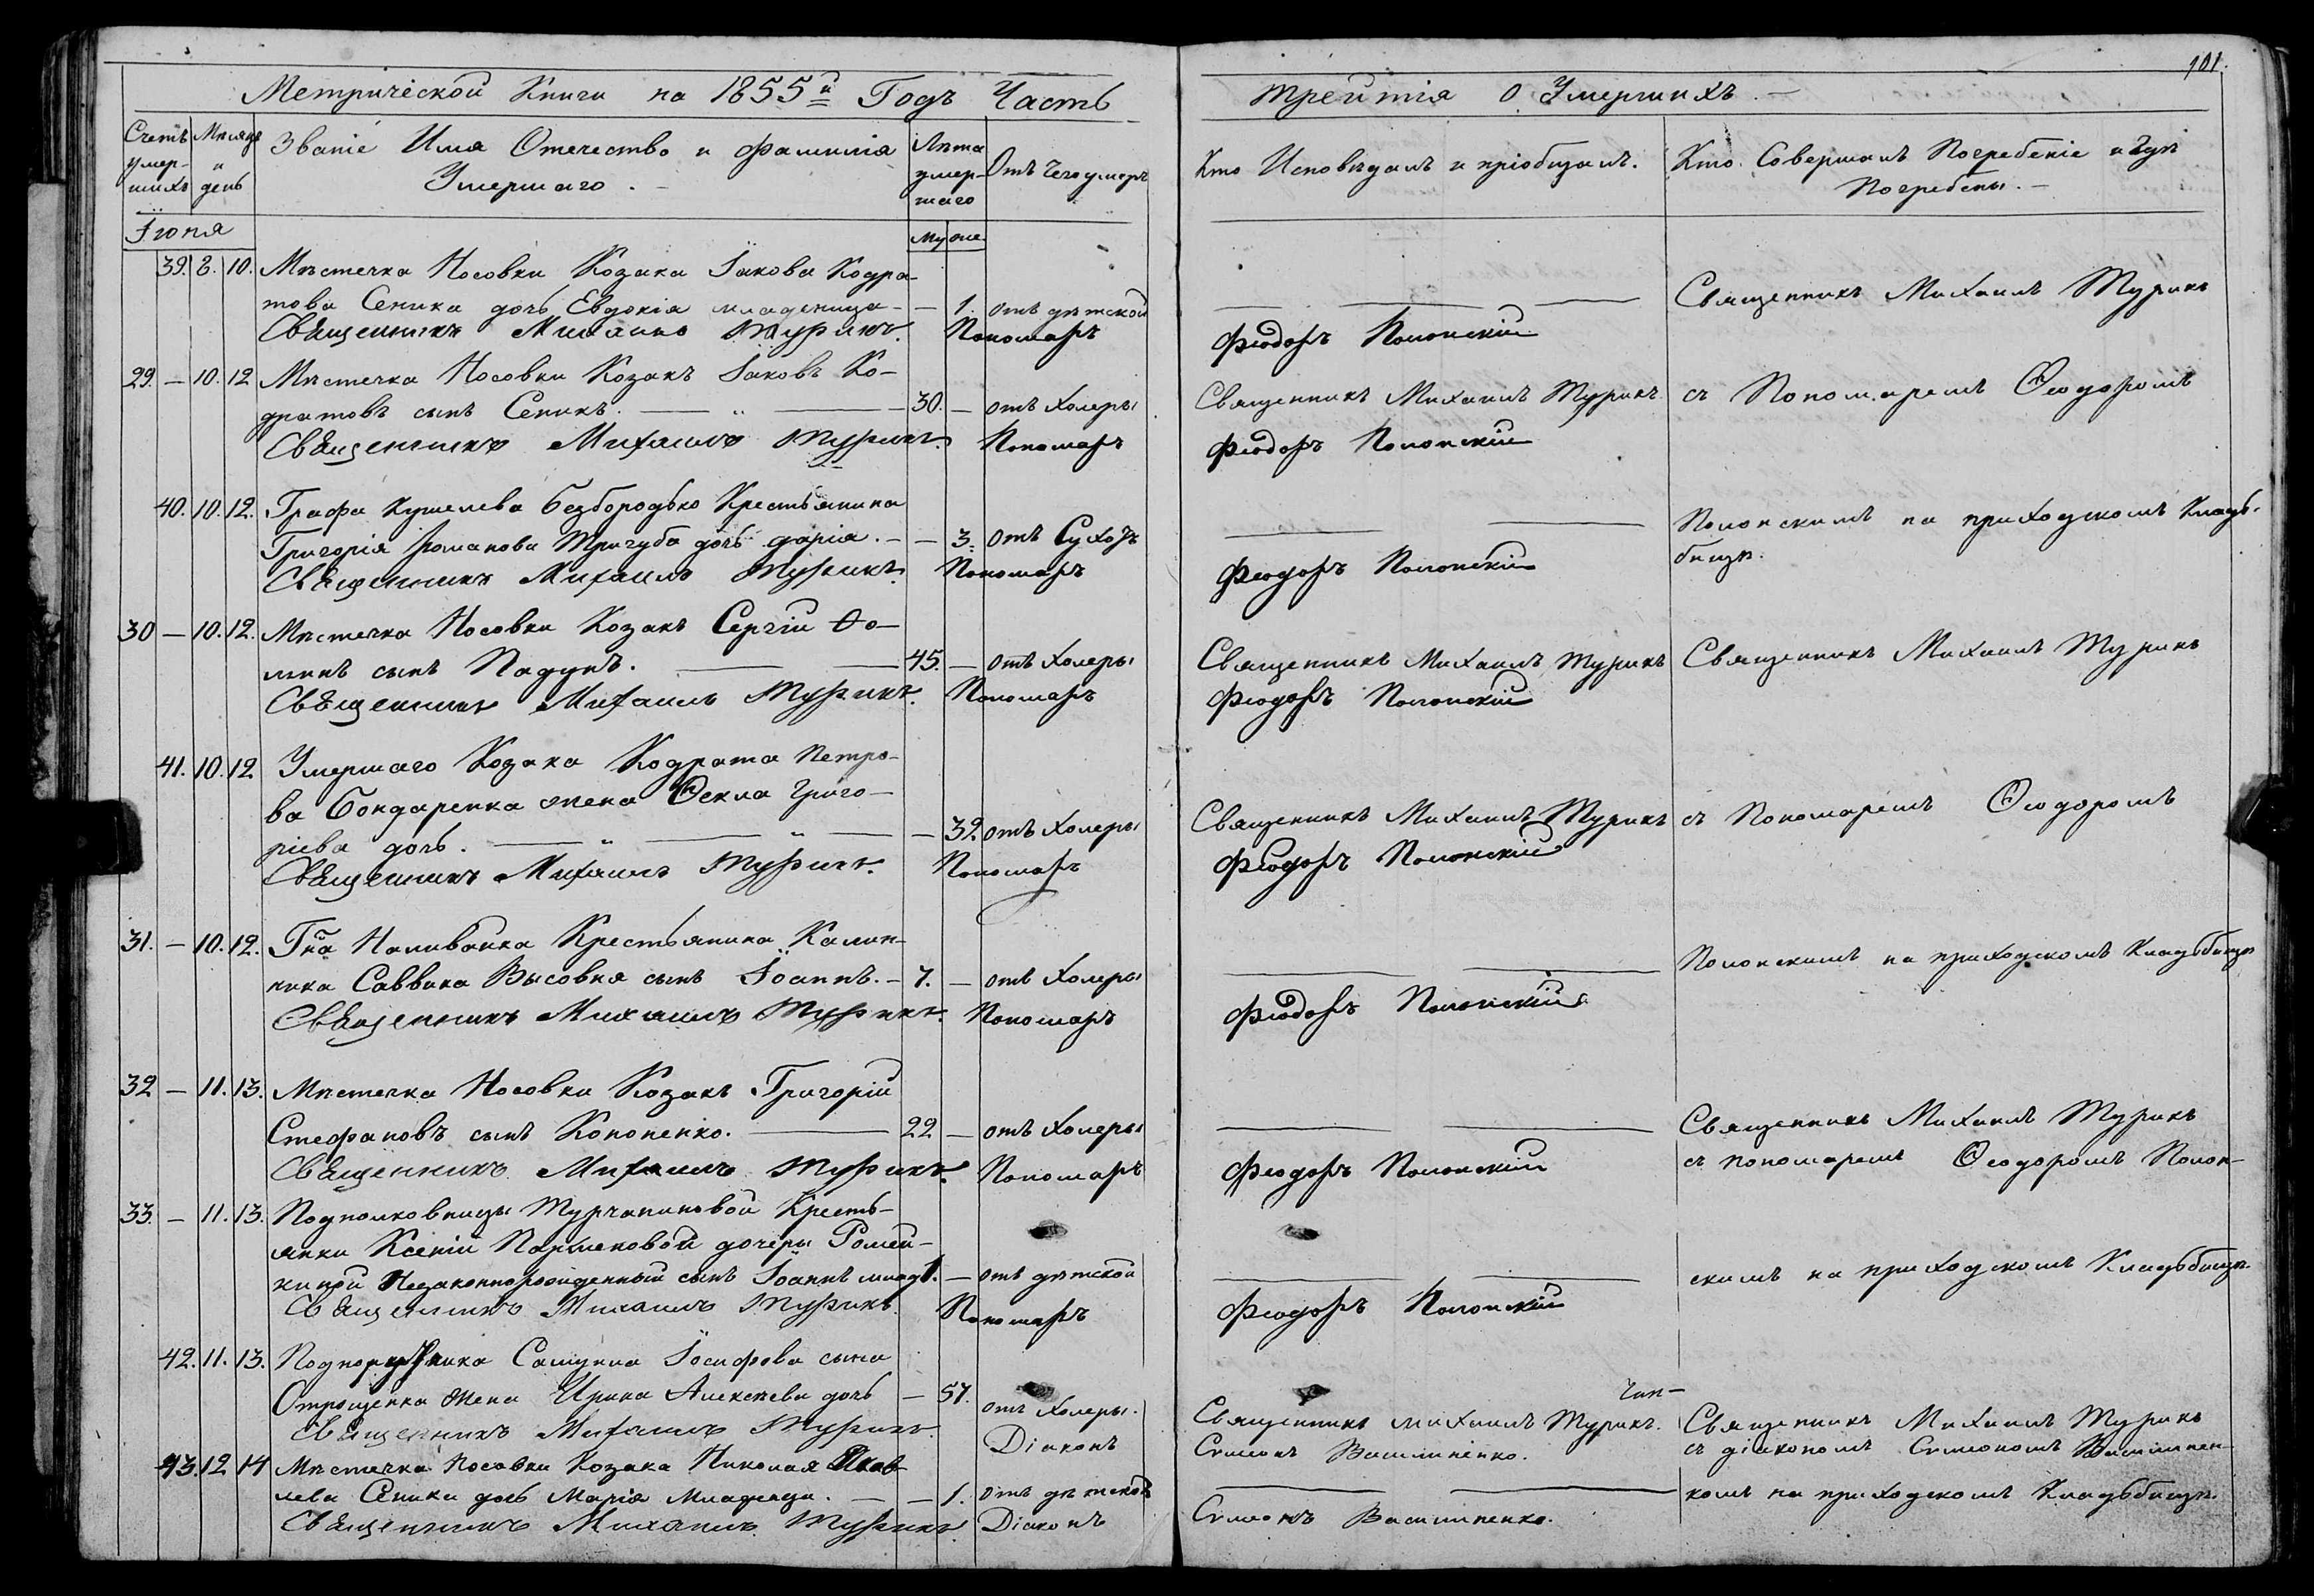 Метрической Книги на 1855й Годъ Часть
третія о Умершихъ.
101.
Счетъ умер-шихъ
Мѣсяцъ и день
Званіе Имя Отечество и фамилія
Умершаго.
Лѣта умер-шаго
Отъ чего умеръ
Кто Исповѣдалъ и пріобщалъ.
Кто Совершалъ Погребеніе и Гдѣ
Погребены.
Іюня
Му же.
39. 8. 10. Мѣстечка Носовки Козака Іакова Кодра-
това Сеника дочь Евдокія младеница — 1. отъ дѣтской
Священникъ Михаилъ Турикъ. Пономарь Феодоръ Полонскій
Священникъ Михаилъ Турикъ
29. — 10. 12 Мѣстечка Носовки Козакъ Іаковъ Ко-
дратовъ сынъ Сеникъ. 30. — отъ Холеры Священникъ Михаилъ Турикъ. съ Пономаремъ Ѳеодоромъ
Священникъ Михаилъ Турикъ. Пономарь Феодоръ Полонскій
40. 10. 12. Графа Кушелева Безбородько Крестьянина
Григорія Романова Тригуба дочь Дарія. — 3. отъ Сухотъ
Полонскимъ на приходскомъ Кладь-
бищѣ.
Священникъ Михаилъ Турикъ. Пономарь Феодоръ Полонскій
30 — 10. 12. Мѣстечка Носовки Козакъ Сергій Ѳо-
минъ сынъ Падунъ. 45. — отъ Холеры Священникъ Михаилъ Турикъ Священникъ Михаилъ Турикъ
Священникъ Михаилъ Турикъ. Пономарь Феодоръ Полонскій
41. 10. 12 Умершаго Козака Кодрата Петро-
ва Бондаренка жена Ѳекла Григо-
ріева дочь. — 39. отъ Холеры Священникъ Михаилъ Турикъ съ Пономаремъ Ѳеодоромъ
Священникъ Михаилъ Турикъ. Пономарь Феодоръ Полонскій
31. — 10. 12. Гна Наливайка Крестьянина Калин-
ника Саввина Высовня сынъ Іоаннъ. — 7. — отъ Холеры
Полонскимъ на приходскомъ Кладьбищѣ
Священникъ Михаилъ Турикъ. Пономарь Феодоръ Полонскій
32 — 11. 13. Мѣстечка Носовки Козакъ Григорій
Стефановъ сынъ Кононенко. 22 — отъ Холеры
Священникъ Михаилъ Турикъ
съ пономаремъ Ѳеодоромъ Полон-
Священникъ Михаилъ Турикъ. Пономарь Феодоръ Полонскій
33. — 11. 13. Подполковницы Турчаниновой Кресть-
янки Ксеніи Парменовой дочери Ромей-
киной Незаконнорожденный сынъ Іоаннъ млад 1. — отъ дѣтской
скимъ на приходскомъ Кладьбищѣ.
Священникъ Михаилъ Турикъ. Пономарь Феодоръ Полонскій
42. 11. 13. Подпоручника Самуила Іосифова сына
Отрощенка жена Ирина Алексѣева дочь — 57. отъ Холеры. Священникъ Михаилъ Турикъ. Священникъ Михаилъ Турикъ
Священникъ Михаилъ Турикъ. Діаконъ Симеонъ Василиненко. съ діакономъ Симеономъ Василинен-
43. 12 14 Мѣстечка Носовки Козака Николая Яков-
лева Сеника дочь Марія Младенца. — 1. отъ дѣтской
комъ на приходскомъ Кладьбищѣ.
Священникъ Михаилъ Турикъ. Діаконъ Симеонъ Василиненко.